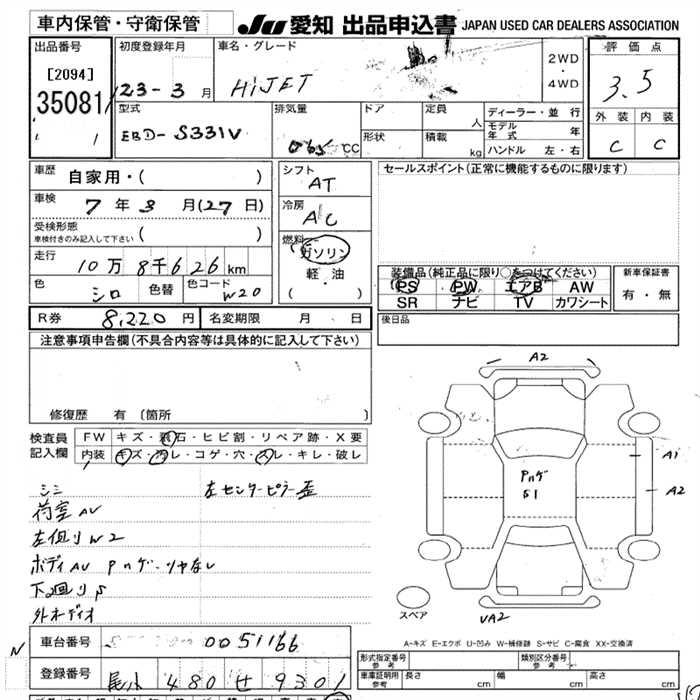 車内保管・守衛保管 JU 愛知 出品申込書 JAPAN USED CAR DEALERS ASSOCIATION
出品番号 初度登録年月 車名・グレード 2WD ・ 4WD 評価点
[2094] 23-3月 HiJET 3.5
35081
型式 排気量 ドア 定員 人 ディーラー・並行 外装 内装
EBD-S331V 065 CC 形状 積載 kg モデル年式 年 C C
1 ハンドル 左・右
車歴 自家用・( ) シフト AT セールスポイント(正常に機能するものに限ります)
車検 7年3月(27日) 冷房 AC
受検形態 車検付きのみ記入して下さい ( )
走行 10万8千626km 燃料 ガソリン 軽・油 ( )
装備品(純正品に限り○をつけてください) 新車保証書
色 シロ 色替 色コード W20 PS PW エアB AW 有・無
SR ナビ TV カワシート
R券 8,220円 名変期限 月 日 後日品
注意事項申告欄(不具合内容等は具体的に記入して下さい)
修復歴 有 〔箇所 〕
検査員記入欄 FW キズ・飛石・ヒビ割・リペア跡・X要
内装 キズ・汚レ・コゲ・穴・スレ・キレ・破レ
A2
A1
A2
51
VA2
スペア
左センターピラー歪
荷室AU
W2
ボディAU
外オーディオ
A-キズ E-エクボ U-凹み W-補修跡 S-サビ C-腐食 XX-交換済
車台番号 0051166
N 登録番号 480 せ 9301
形式指定番号 参考 類別区分番号 参考
車庫証明用 参考 長さ cm 幅 cm 高さ cm